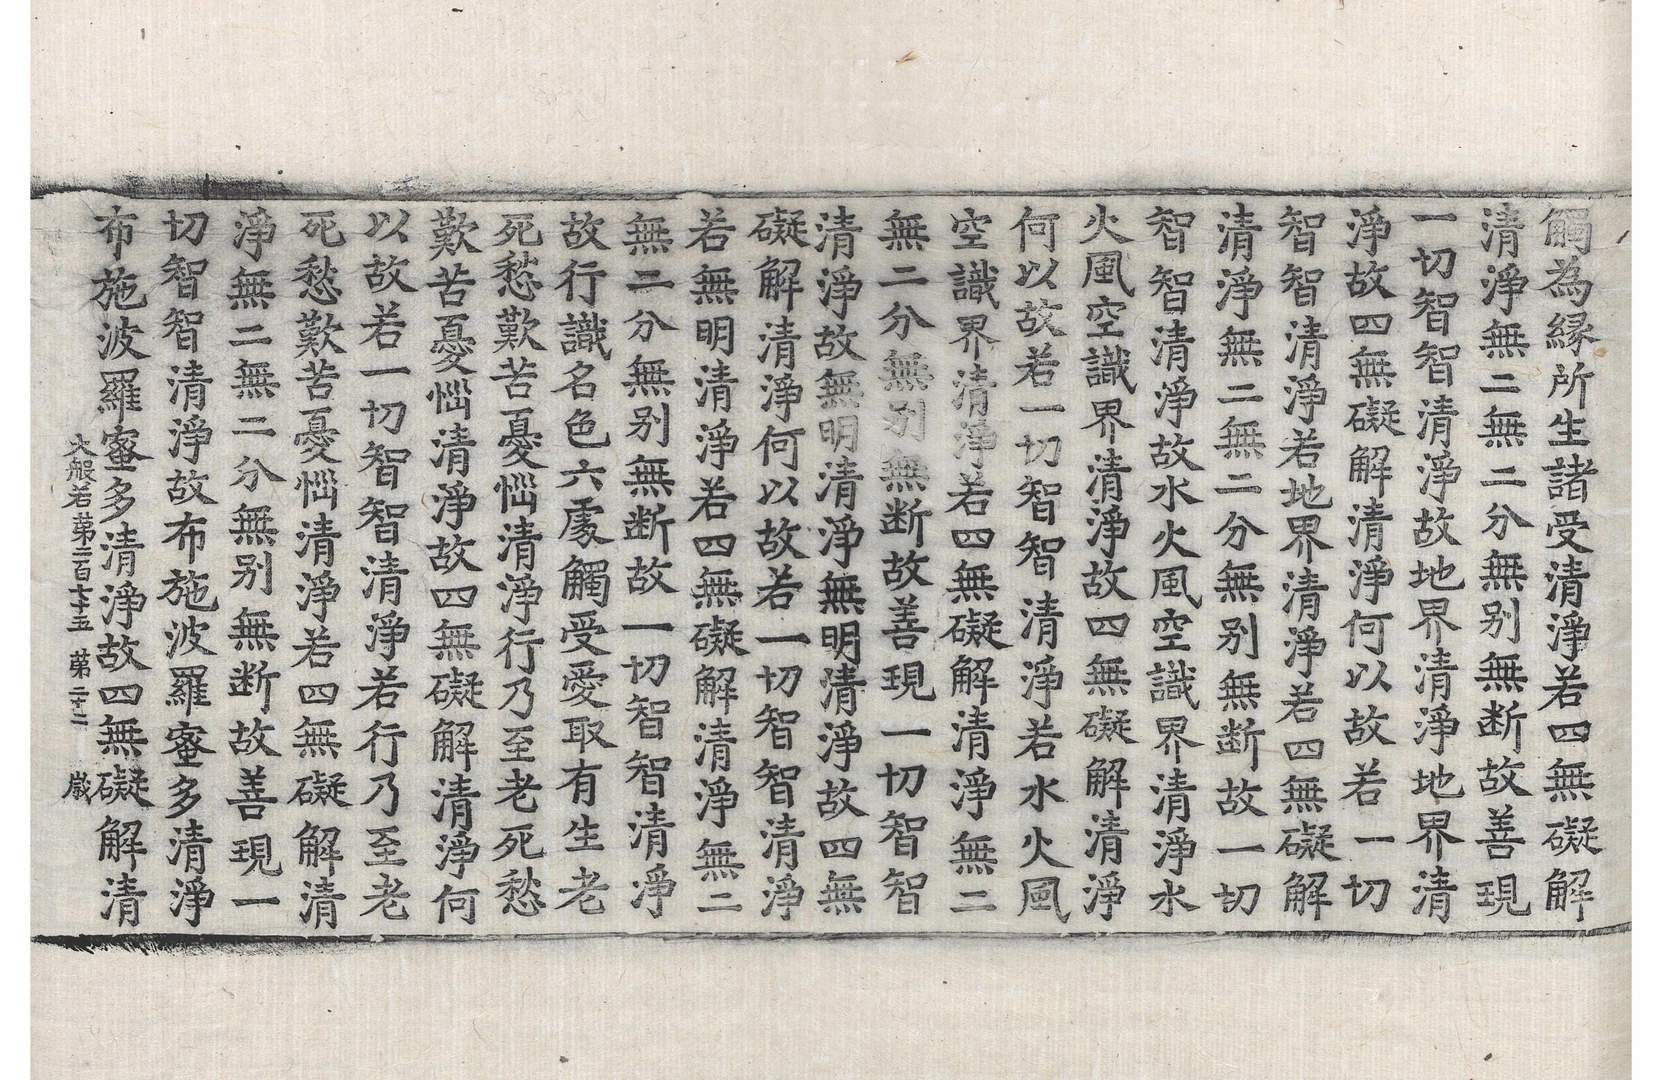 觸為縁所生諸受清淨若四無礙解
清淨無二無二分無别無断故善現
一切智智清淨故地界清淨地界清
淨故四無礙解清淨何以故若一切
智智清淨若地界清淨若四無礙解
清淨無二無二分無别無断故一切
智智清淨故水火風空識界清淨水
火風空識界清淨故四無礙解清淨
何以故若一切智智清淨若水火風
空識界清淨若四無礙解清淨無二
無二分無别無断故善現一切智智
清淨故無明清淨無明清淨故四無
礙解清淨何以故若一切智智清淨
若無明清淨若四無礙解清淨無二
無二分無别無断故一切智智清淨
故行識名色六處觸受愛取有生老
死愁歎苦憂惱清淨行乃至老死愁
歎苦憂惱清淨故四無礙解清淨何
以故若一切智智清淨若行乃至老
死愁歎苦憂惱清淨若四無礙解清
淨無二無二分無别無断故善現一
切智智清淨故布施波羅蜜多清淨
布施波羅蜜多清淨故四無礙解清
大般若第二百七十五 第二十二 歲